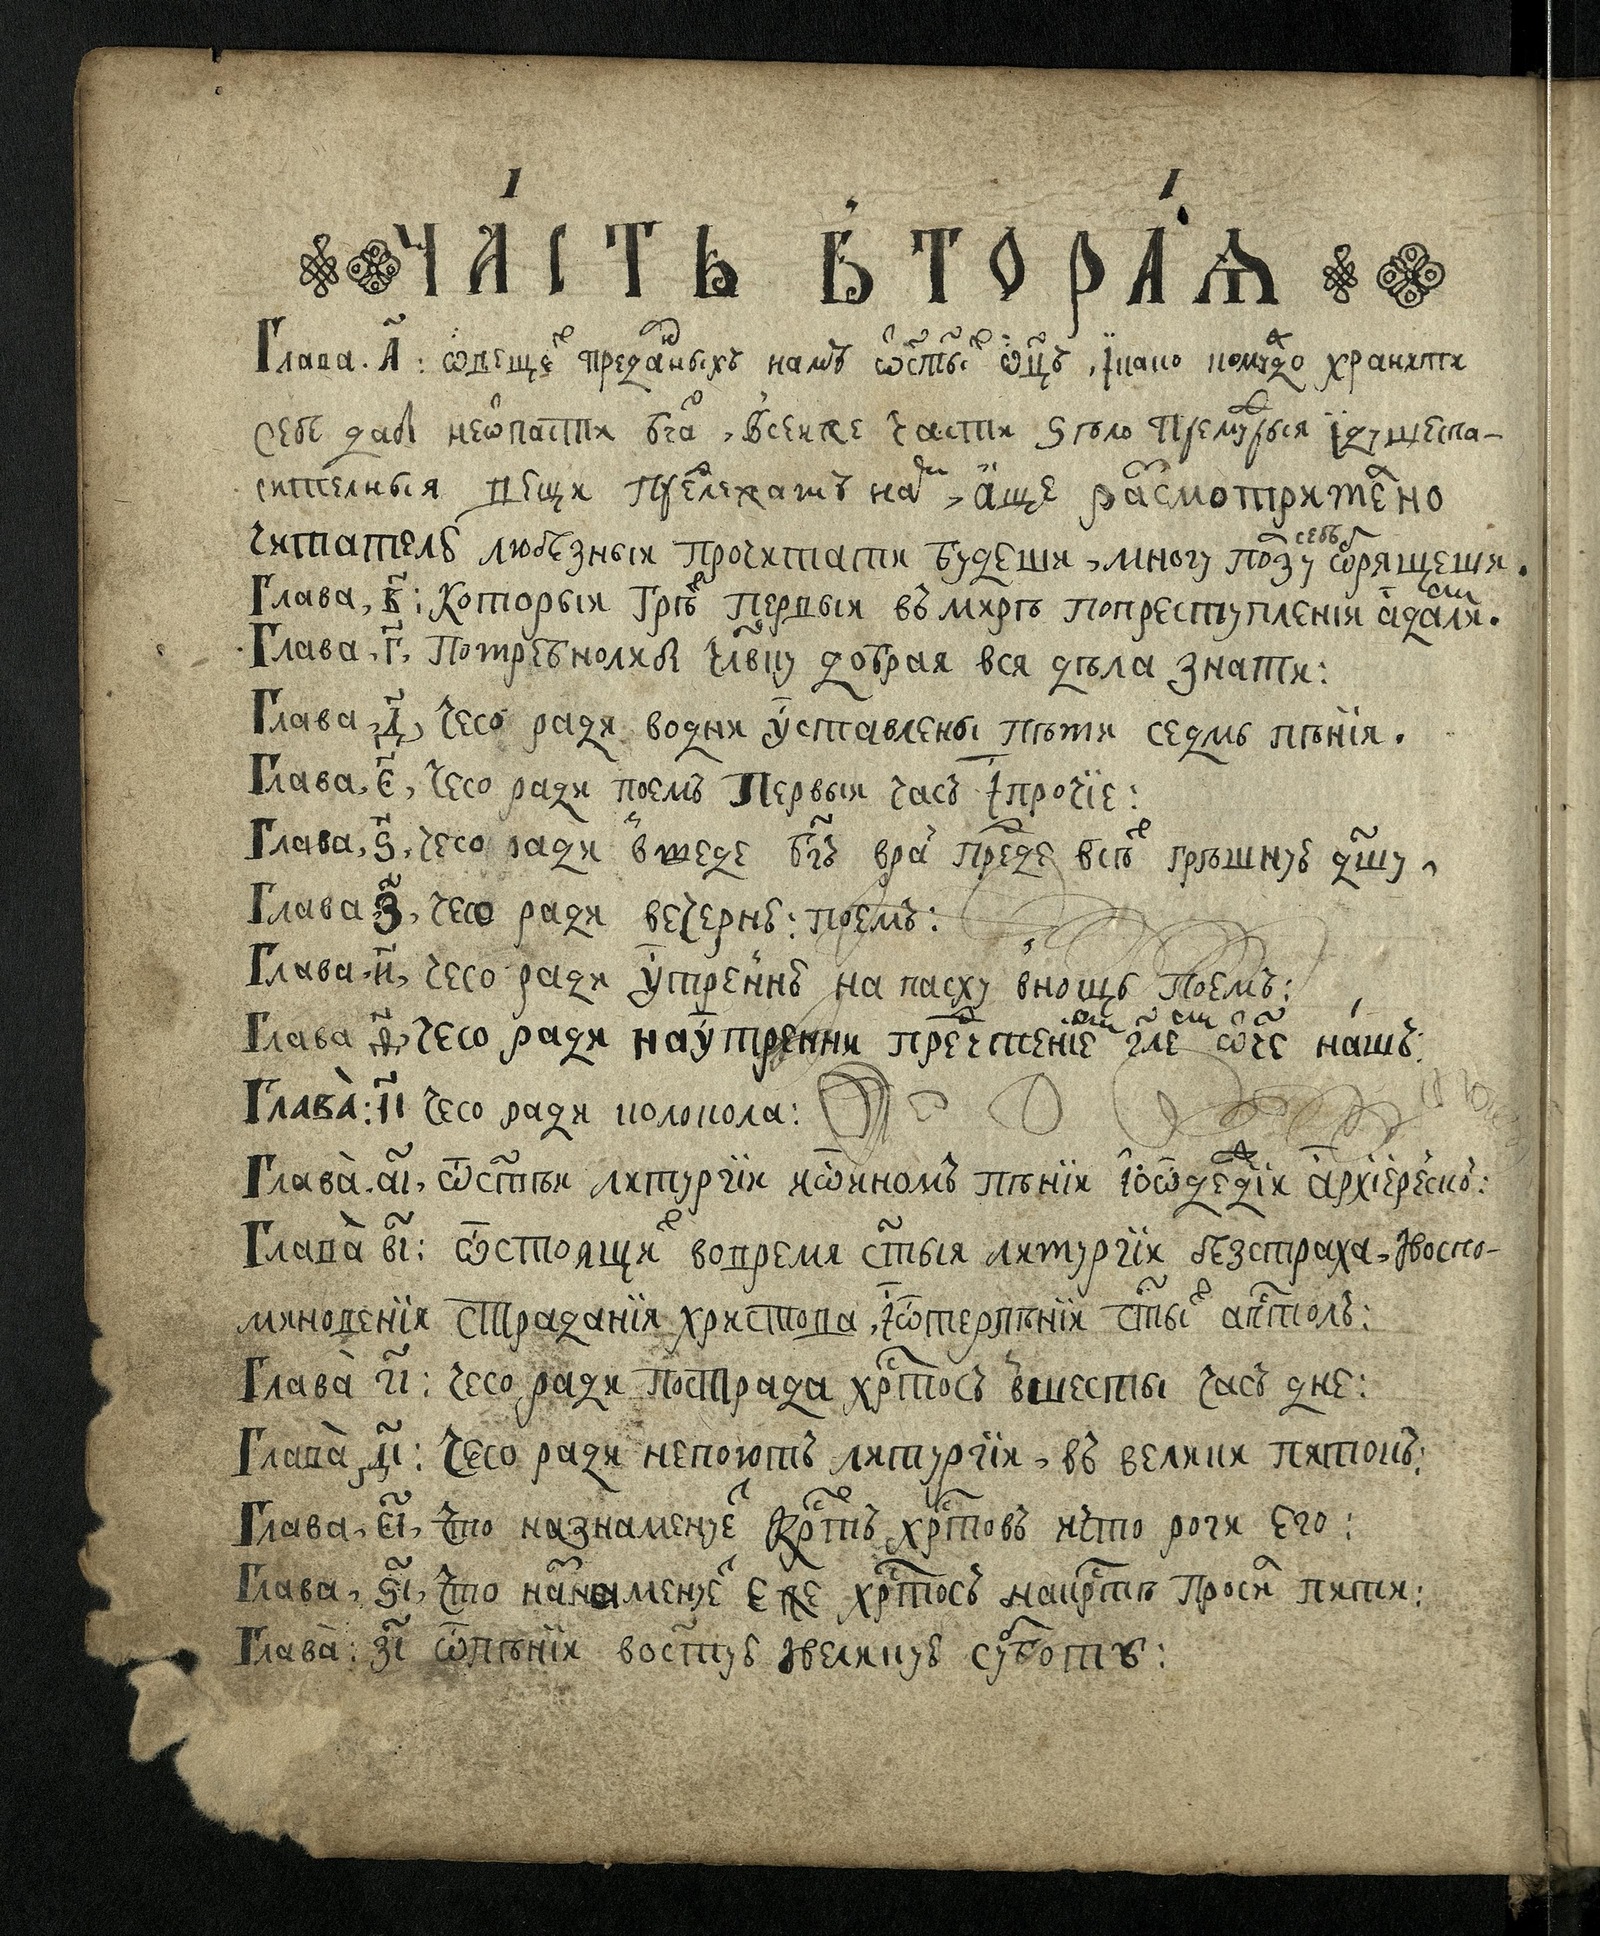 ЧА́СТЬ ВТОРА́Ѧ
Глава. а҃: ѡвещеⷯ преданыхъ намъ ѿст҃ыⷯ ѻ҃цъ, їкако комуⷤдо хранити
себе дабы неѿпасти бг҃а, всейже части ѕѣло премуⷣрыя їдушеспа-
сителныя вещи преⷣлежатъ наⷨ, аще расмотрително
читателю любезныи прочитати будеши, многу ползу себѣ ѡбрящеши.
Глава, в҃: Которыи грѣⷯ первыи въ мирѣ попреступлении адамли.
Глава, г҃, Потребноли чл҃вку добрая вся дѣла знати:
Глава, д҃, чесо ради водни уставлены пѣти седмь пѣнїи.
Глава, є҃, чесо ради поемъ Первыи часъ їпрочїе:
Глава, ѕ҃, чесо ради введе бг҃ъ враⷮ преⷤде всѣⷯ грѣшную дш҃у,
Глава з҃, чесо ради вечерню: поемъ:
Глава, и҃, чесо ради утренню на пасху внощь Поемъ:
Глава ѳ҃, чесо ради наутрени пречтенїе гл҃е ѻ҃че нашъ:
Глава̀: і҃ чесо ради колокола:
Глава̀. аі҃, ѿст҃ѣи литургїи иѡином пѣнїи їоѡдеⷤдїи архїереискои:
Глава̀ ві҃: ѡстоящиⷯ вовремя ст҃ыя литургїи безстраха, ївоспо-
миновенїи страданїи христова, їѡтерпѣнїи ст҃ыⷯ апⷭ҇толъ:
Глава̀ гі҃: чесо ради пострада хрⷭ҇тосъ вшесты часъ дне:
Глава̀ ді҃: Чесо ради непоютъ литургїи, въ велики пятокъ:
Глава, єі҃, Что назнаменуеⷮ крⷭ҇тъ хрⷭ҇товъ ичто роги Его:
Глава, ѕі҃, Что назнаменуеⷮ Еже хрⷭ҇тосъ накрⷭ҇тѣ просиⷧ пити:
Глава̀: зі҃ ѡпѣнїи вост҃ую ївеликую суботу: